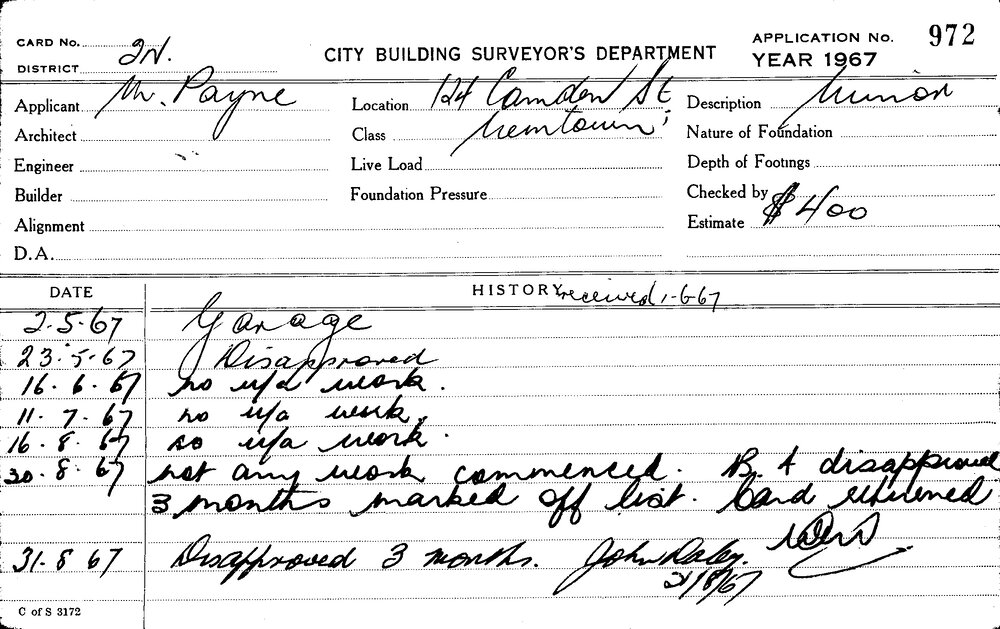 CARD No. 2N.
DISTRICT
CITY BUILDING SURVEYOR'S DEPARTMENT
APPLICATION No. 972
YEAR 1967
Applicant Mr. Payne
Architect
Engineer
Builder
Alignment
D.A.
Location 124 Camden St
Class Newtown
Live Load
Foundation Pressure
Description Minor
Nature of Foundation
Depth of Footings
Checked by
Estimate $400
DATE HISTORY received 1-6-67
2-5-67 Garage
23-5-67 Disapproved
16-6-67 no u/a work.
11-7-67 no u/a work.
16-8-67 no u/a work.
30-8-67 not any work commenced. B.A disapproved
3 months marked off list. Card returned
31-8-67 Disapproved 3 months. John Daley.
31/8/67
C of S 3172